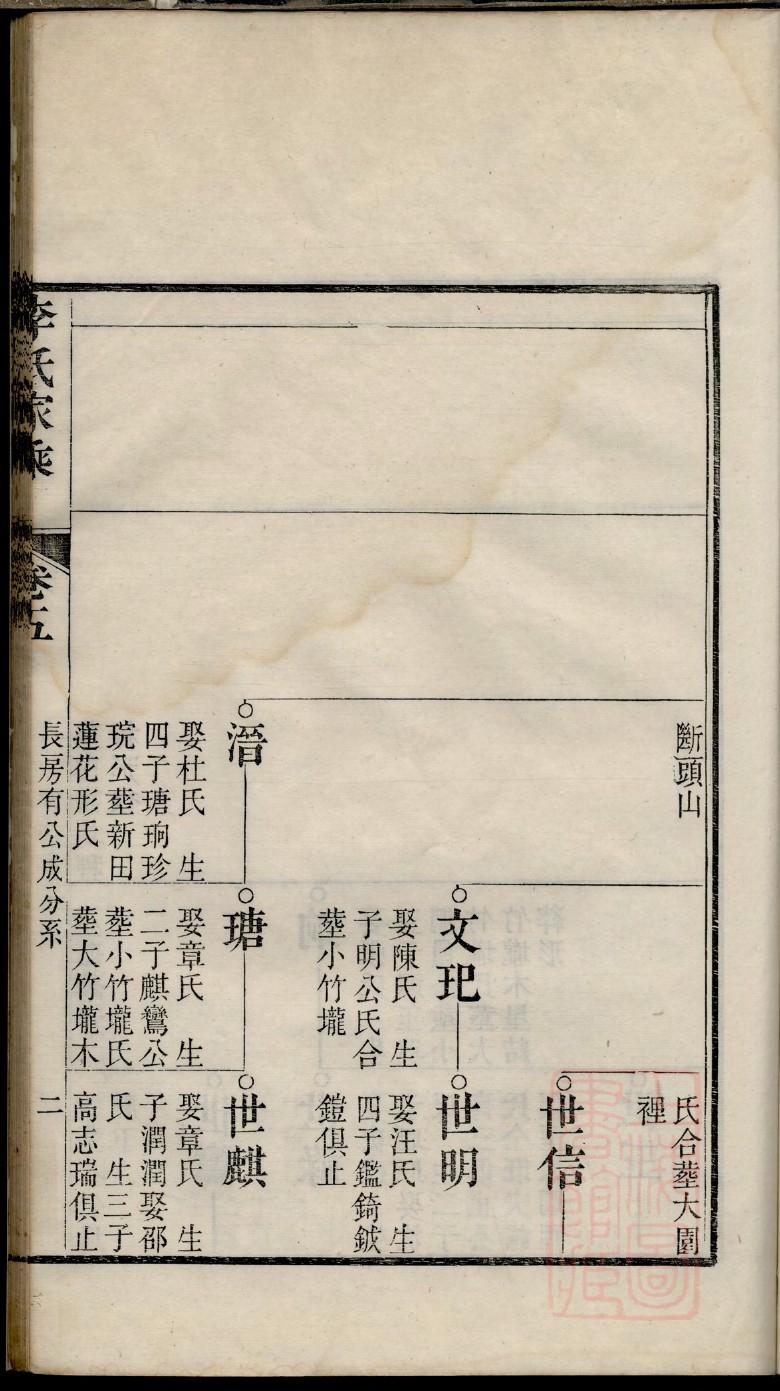 斷頭山
氏合塟大園
裡
世信
文玘
娶陳氏　生
子明公氏合
塟小竹壠
世明
娶汪氏　生
四子鑑錡鈸
鎧俱止
溍
娶杜氏　生
四子瑭珦珍
琓公塟新田
蓮花形氏
瑭
娶章氏　生
二子麒鸞公
塟小竹壠氏
塟大竹壠木
世麒
娶章氏　生
子潤潤娶邵
氏　生三子
高志瑞俱止
李氏家乘
卷五
長房有公成分系
二